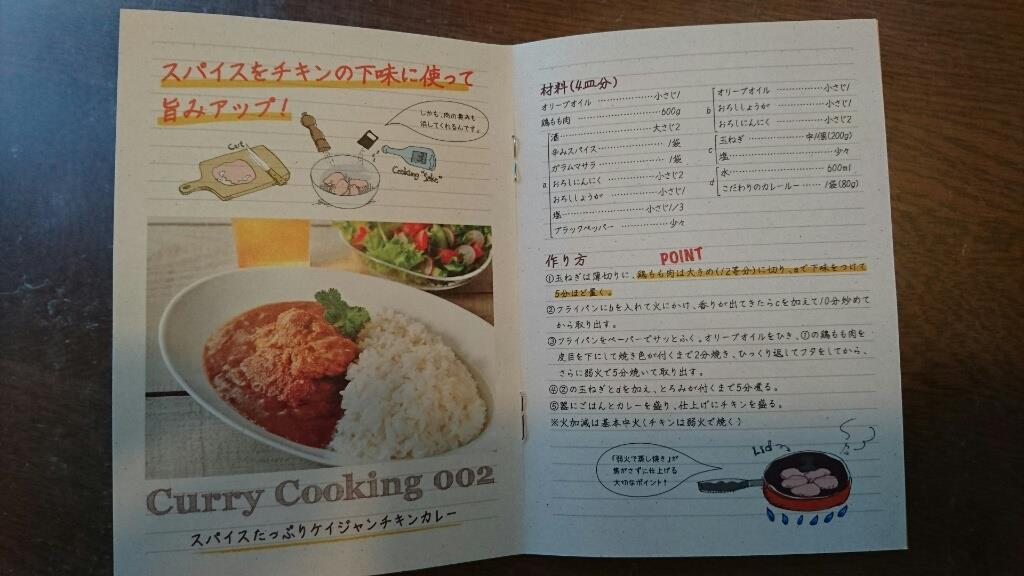 スパイスをチキンの下味に使って
旨みアップ!
しかも、肉の臭みも
消してくれるんです。
Cut
Cooking "Sake"
Curry Cooking 002
スパイスたっぷりケイジャンチキンカレー
材料(4皿分)
オリーブオイル ………… 小さじ1
鶏もも肉 ………… 600g
a
酒 ………… 大さじ2
辛みスパイス ………… 1袋
ガラムマサラ ………… 1袋
おろしにんにく ………… 小さじ2
おろししょうが ………… 小さじ1
塩 ………… 小さじ1/3
ブラックペッパー ………… 少々
b
オリーブオイル ………… 小さじ1
おろししょうが ………… 小さじ1
おろしにんにく ………… 小さじ2
c
玉ねぎ ………… 中1個(200g)
塩 ………… 少々
d
水 ………… 600ml
こだわりのカレールー ………… 1袋(80g)
作り方
POINT
①玉ねぎは薄切りに、鶏もも肉は大きめ(12等分)に切り、aで下味をつけて
5分ほど置く。
②フライパンにbを入れて火にかけ、香りが出てきたらcを加えて10分炒めて
から取り出す。
③フライパンをペーパーでサッとふく。オリーブオイルをひき、①の鶏もも肉を
皮目を下にして焼き色が付くまで2分焼き、ひっくり返してフタをしてから、
さらに弱火で5分焼いて取り出す。
④②の玉ねぎとdを加え、とろみが付くまで5分煮る。
⑤器にごはんとカレーを盛り、仕上げにチキンを盛る。
※火加減は基本中火(チキンは弱火で焼く)
「弱火で蒸し焼き」が
焦がさずに仕上げる
大切なポイント!
Lid